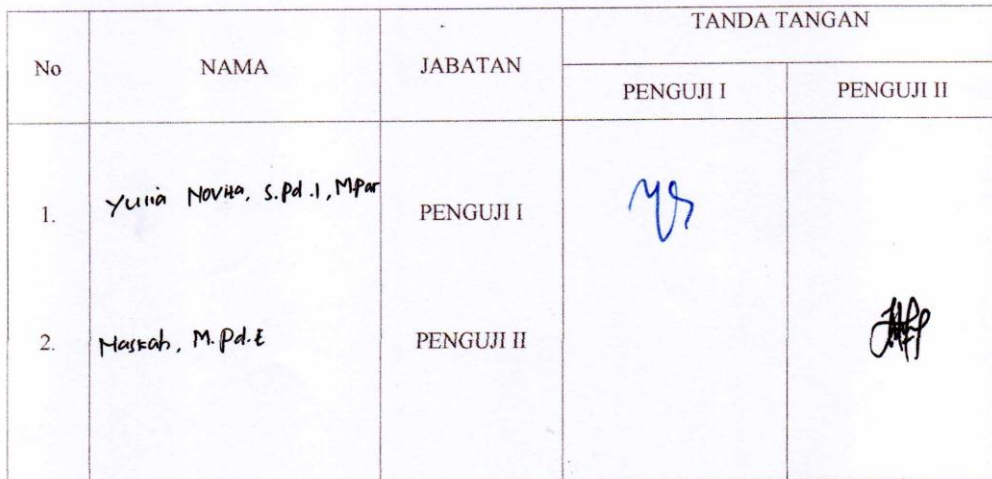 No NAMA JABATAN TANDA TANGAN
PENGUJI I PENGUJI II
1. Yulia Novita, S.Pd.I, M.Par PENGUJI I
2. Maskah, M.Pd.E PENGUJI II